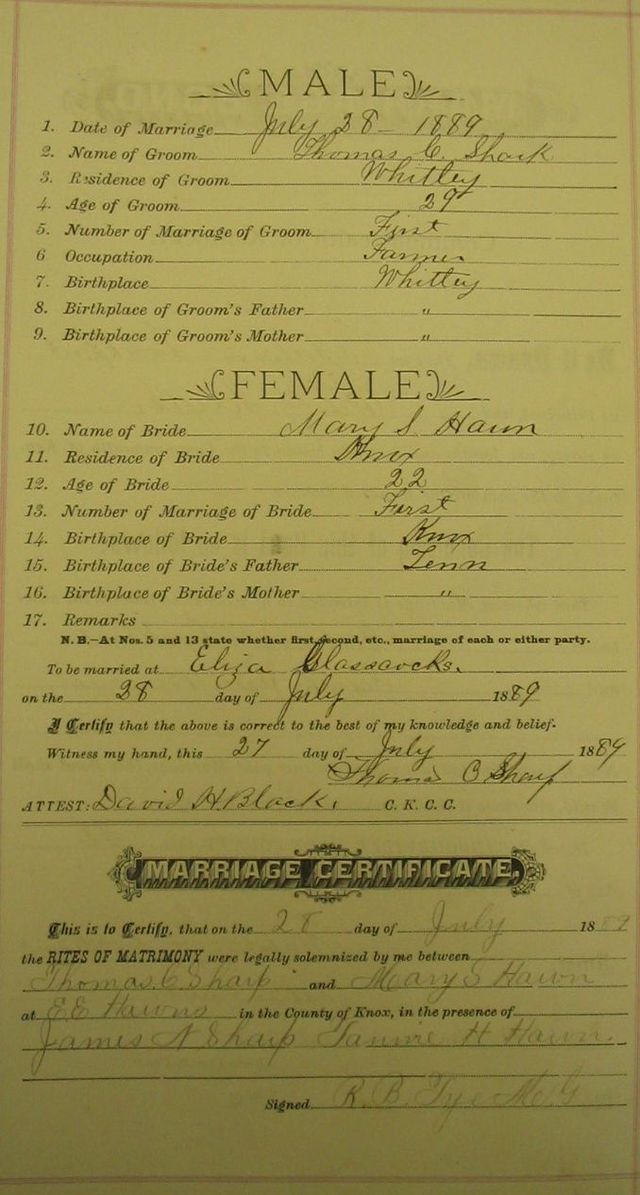 MALE
1. Date of Marriage July 28 - 1889
2. Name of Groom Thomas C. Shark
3. Residence of Groom Whitley
4. Age of Groom 29
5. Number of Marriage of Groom First
6 Occupation Farmer
7. Birthplace Whitley
8. Birthplace of Groom's Father "
9. Birthplace of Groom's Mother "
FEMALE
10. Name of Bride Mary S Hawn
11. Residence of Bride Knox
12. Age of Bride 22
13. Number of Marriage of Bride First
14. Birthplace of Bride Knox
15. Birthplace of Bride's Father Tenn
16. Birthplace of Bride's Mother "
17. Remarks
N. B.—At Nos. 5 and 13 state whether first, second, etc., marriage of each or either party.
To be married at Eliza Glassavcks.
on the 28 day of July 1889
I Certify that the above is correct to the best of my knowledge and belief.
Witness my hand, this 27 day of July 1889
Thomas C Sharp
ATTEST: David H. Black. C. K. C. C.
MARRIAGE CERTIFICATE.
This is to Certify, that on the 28 day of July 1889
the RITES OF MATRIMONY were legally solemnized by me between
Thomas C Sharp and Mary S Hawn
at E E Hawns in the County of Knox, in the presence of
James N Sharp Tannie H Hawn.
Signed R. B. Tye M. G